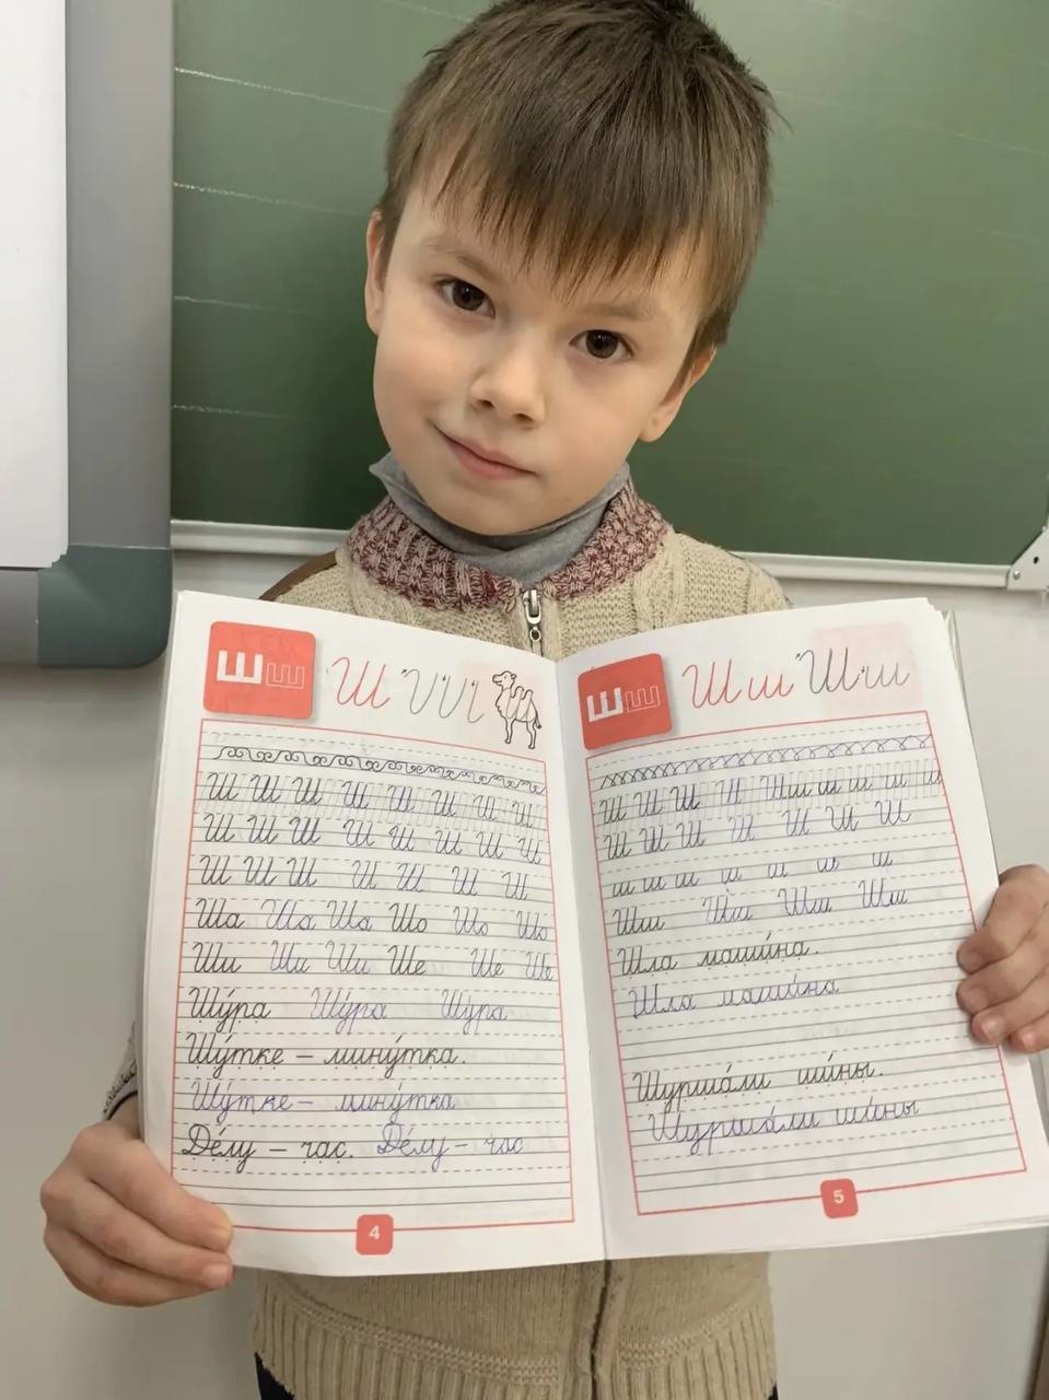 Шш Ш
Ш Ш Ш Ш Ш Ш Ш Ш
Ш Ш Ш Ш Ш Ш Ш Ш
Ш Ш Ш Ш Ш Ш Ш
Ша Ша Ша Шо Шо Шо
Ши Ши Ши Ше Ше Ше
Шу́ра Шу́ра Шу́ра
Шу́тке – мину́тка.
Шу́тке – мину́тка
Де́лу – час. Де́лу – час
4
Шш Шш Шш
Ш Ш Ш Ш Шш ш ш ш ш
Ш Ш Ш Ш Ш Ш Ш
ш ш ш ш ш ш ш
Шш Шш Шш Шш
Шла маши́на.
Шла маши́на
Шурша́ли ши́ны.
Шурша́ли ши́ны
5